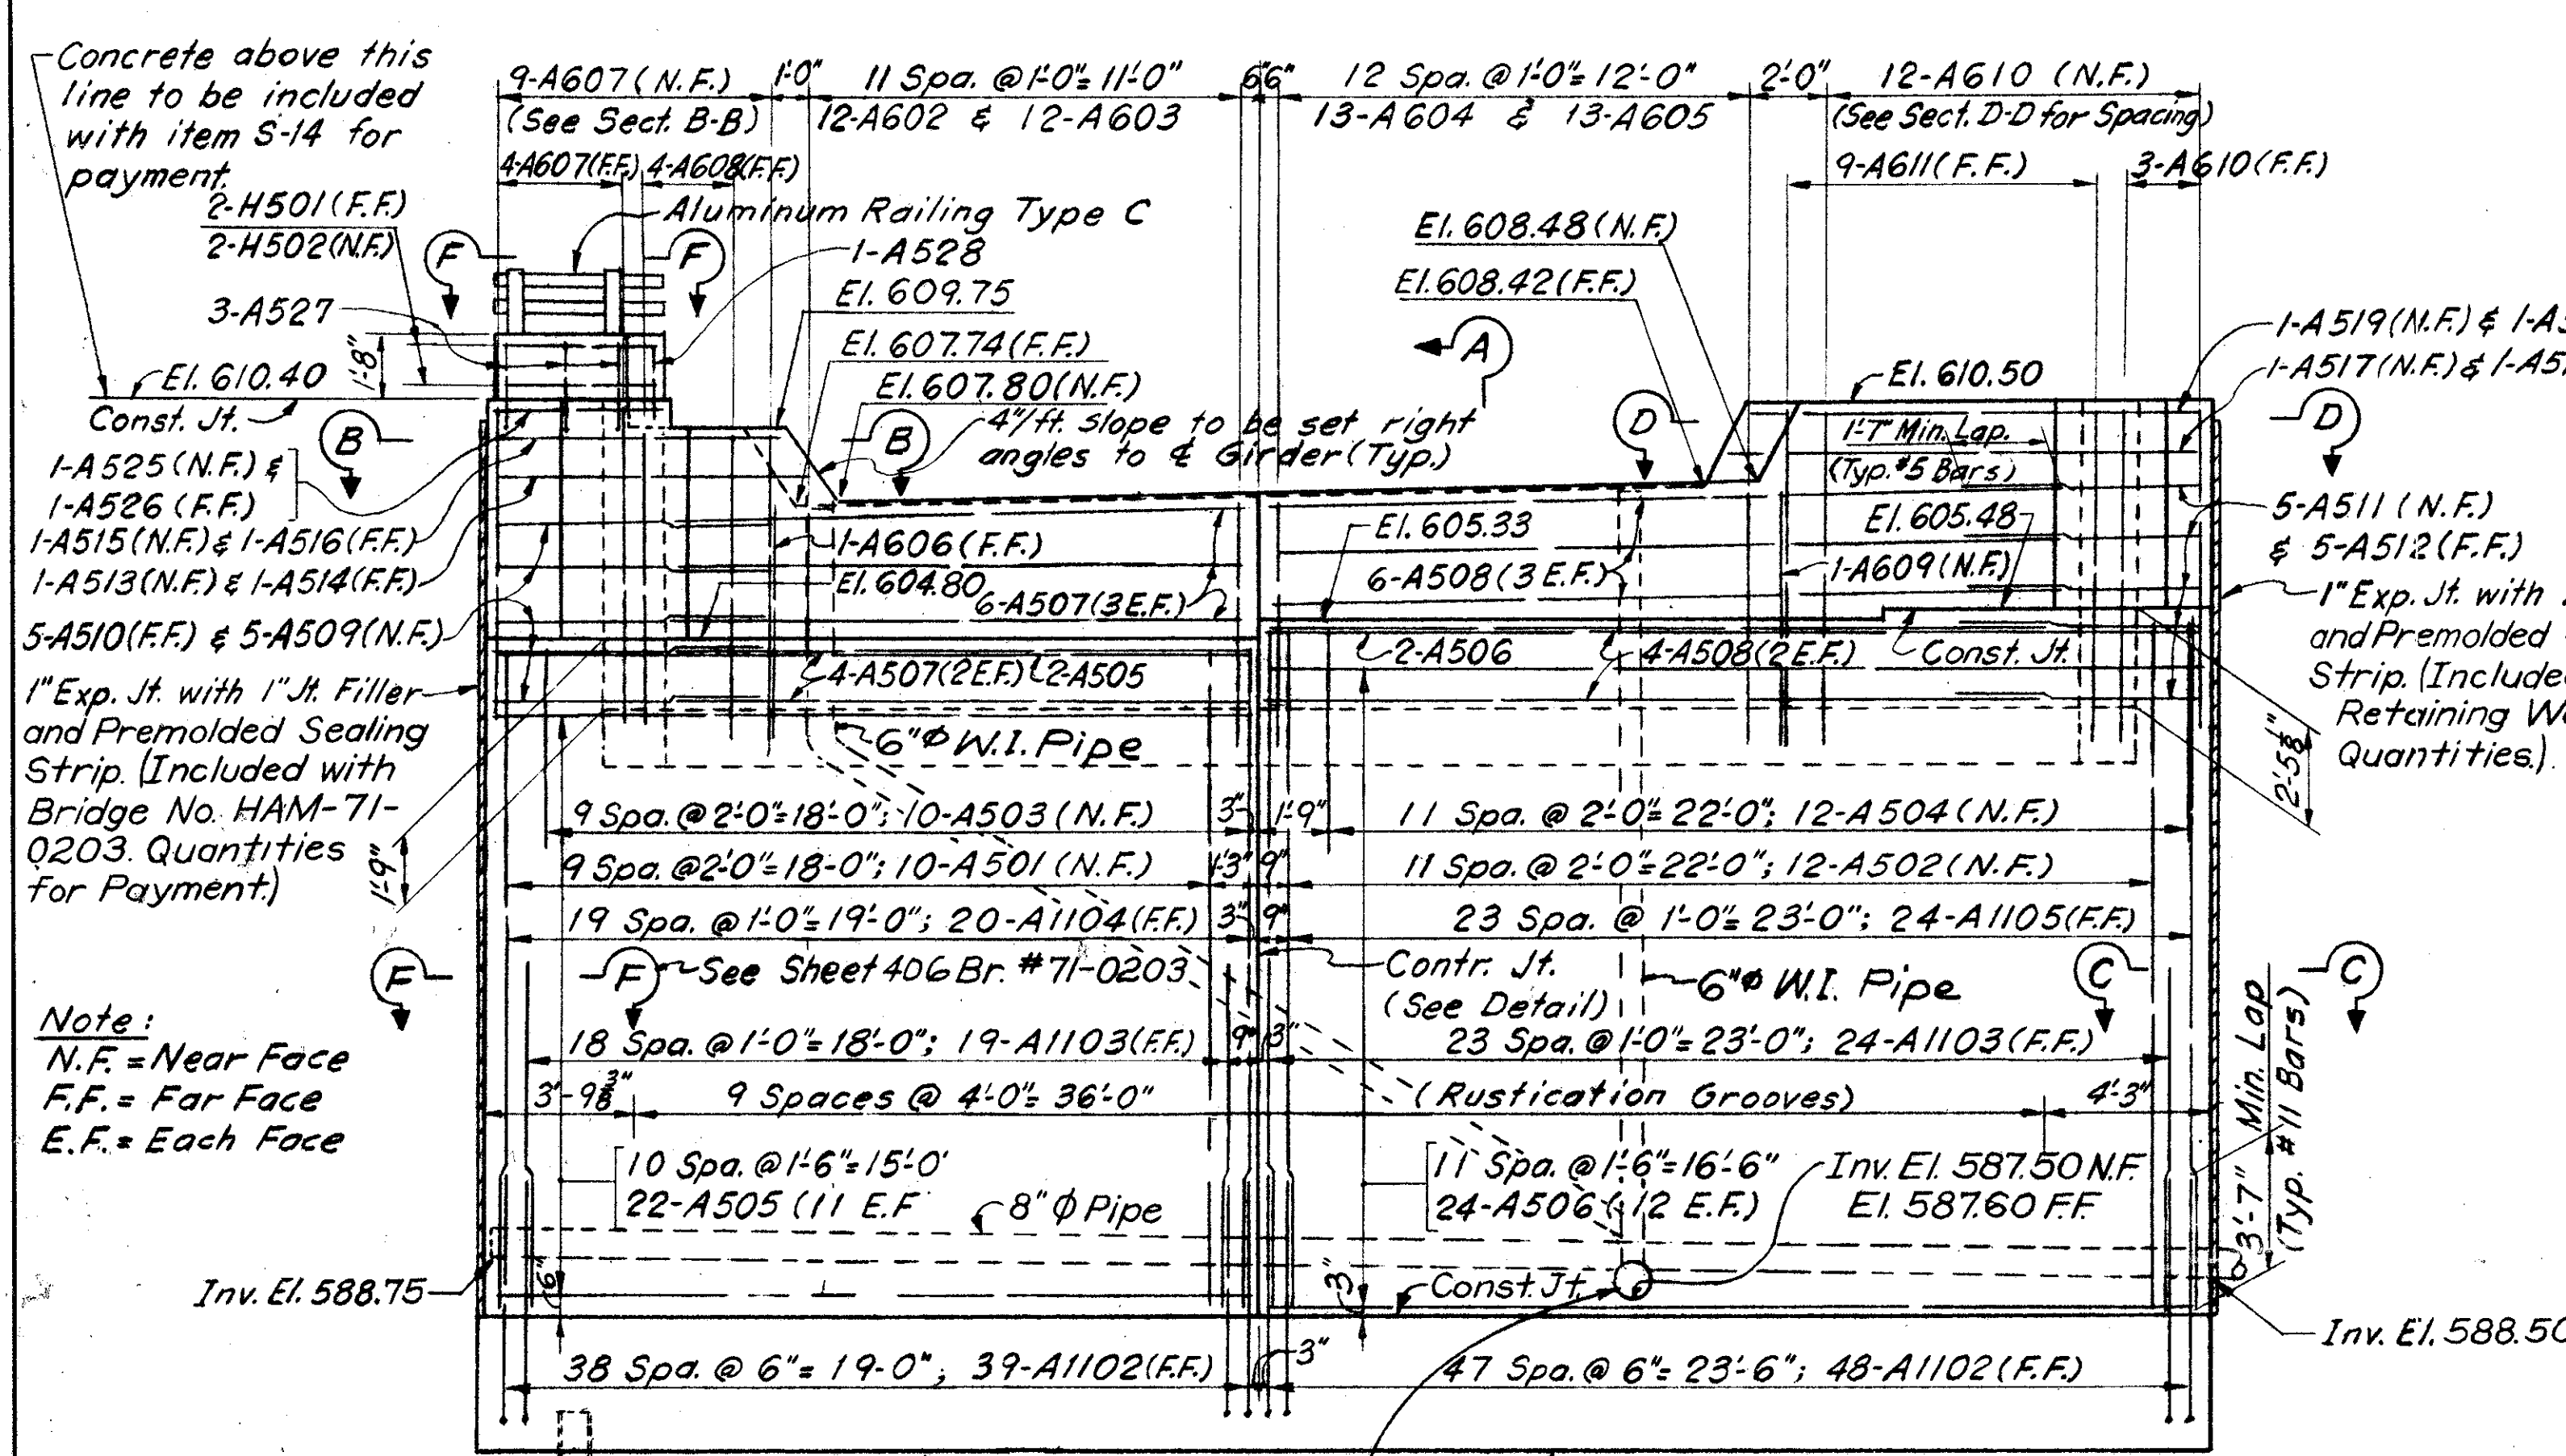 Concrete above this
line to be included
with item S-14 for
payment.
9-A607 (N.F.)
(See Sect. B-B)
1'-0"
11 Spa. @ 1'-0"= 11'-0"
12-A602 & 12-A603
6"
6"
12 Spa. @ 1'-0"= 12'-0"
13-A604 & 13-A605
2'-0"
12-A610 (N.F.)
(See Sect. D-D for Spacing)
4-A607(F.F.)
4-A608(F.F.)
9-A611(F.F.)
3-A610(F.F.)
2-H501(F.F.)
2-H502(N.F.)
Aluminum Railing Type C
F
F
1-A528
3-A527
El. 609.75
El. 608.48(N.F.)
El. 608.42(F.F.)
A
1'-8"
El. 610.40
Const. Jt.
El. 607.74(F.F.)
El. 607.80(N.F.)
4"/ft. slope to be set right
angles to ℄ Girder (Typ.)
B
B
D
D
El. 610.50
1'-7" Min. Lap.
(Typ. #5 Bars)
1-A519(N.F.) & 1-A5
1-A517(N.F.) & 1-A5
1-A525(N.F.) &
1-A526(F.F.)
1-A515(N.F.) & 1-A516(F.F.)
1-A513(N.F.) & 1-A514(F.F.)
5-A510(F.F.) & 5-A509(N.F.)
1-A606(F.F.)
El. 604.80
6-A507(3 E.F.)
El. 605.33
6-A508(3 E.F.)
El. 605.48
1-A609(N.F.)
5-A511 (N.F.)
& 5-A512(F.F.)
1" Exp. Jt. with
and Premolded
Strip. (Include
Retaining W
Quantities.)
1" Exp. Jt. with 1" Jt. Filler
and Premolded Sealing
Strip. (Included with
Bridge No. HAM-71-
0203. Quantities
for Payment.)
4-A507(2 E.F.)
2-A505
2-A506
4-A508(2 E.F.)
Const. Jt.
6"Φ W.I. Pipe
2'-5⅝"
1'-9"
9 Spa. @ 2'-0"=18'-0"; 10-A503 (N.F.)
3"
1'-9"
11 Spa. @ 2'-0"= 22'-0"; 12-A504 (N.F.)
9 Spa. @ 2'-0"=18'-0"; 10-A501 (N.F.)
1'-3"
9"
11 Spa. @ 2'-0"=22'-0"; 12-A502 (N.F.)
19 Spa. @ 1'-0"= 19'-0"; 20-A1104(F.F.)
3"
9"
23 Spa. @ 1'-0"= 23'-0"; 24-A1105(F.F.)
F
F
See Sheet 406 Br. #71-0203
Contr. Jt.
(See Detail)
6"Φ W.I. Pipe
C
C
Note:
N.F. = Near Face
F.F. = Far Face
E.F. = Each Face
18 Spa. @ 1'-0"= 18'-0"; 19-A1103(F.F.)
9"
3"
23 Spa. @ 1'-0"= 23'-0"; 24-A1103(F.F.)
3'-9⅜"
9 Spaces @ 4'-0"= 36'-0"
(Rustication Grooves)
4'-3"
3'-7" Min. Lap
(Typ. #11 Bars)
10 Spa. @ 1'-6"= 15'-0'
22-A505 (11 E.F
8" Φ Pipe
11 Spa. @ 1'-6"= 16'-6"
24-A506 (12 E.F.)
Inv. El. 587.50 N.F.
El. 587.60 F.F.
Inv. El. 588.75
6"
3"
Const. Jt.
Inv. El. 588.50
38 Spa. @ 6"= 19'-0"; 39-A1102(F.F.)
3"
47 Spa. @ 6"= 23'-6"; 48-A1102(F.F.)